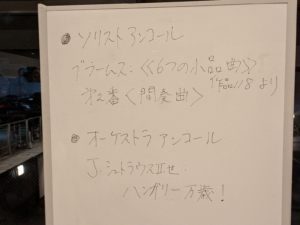 ● ソリストアンコール
ブラームス:《6つの小品曲》
作品118より
第2番〈間奏曲〉
● オーケストラアンコール
J.シュトラウスⅡせ.
ハンガリー万歳!